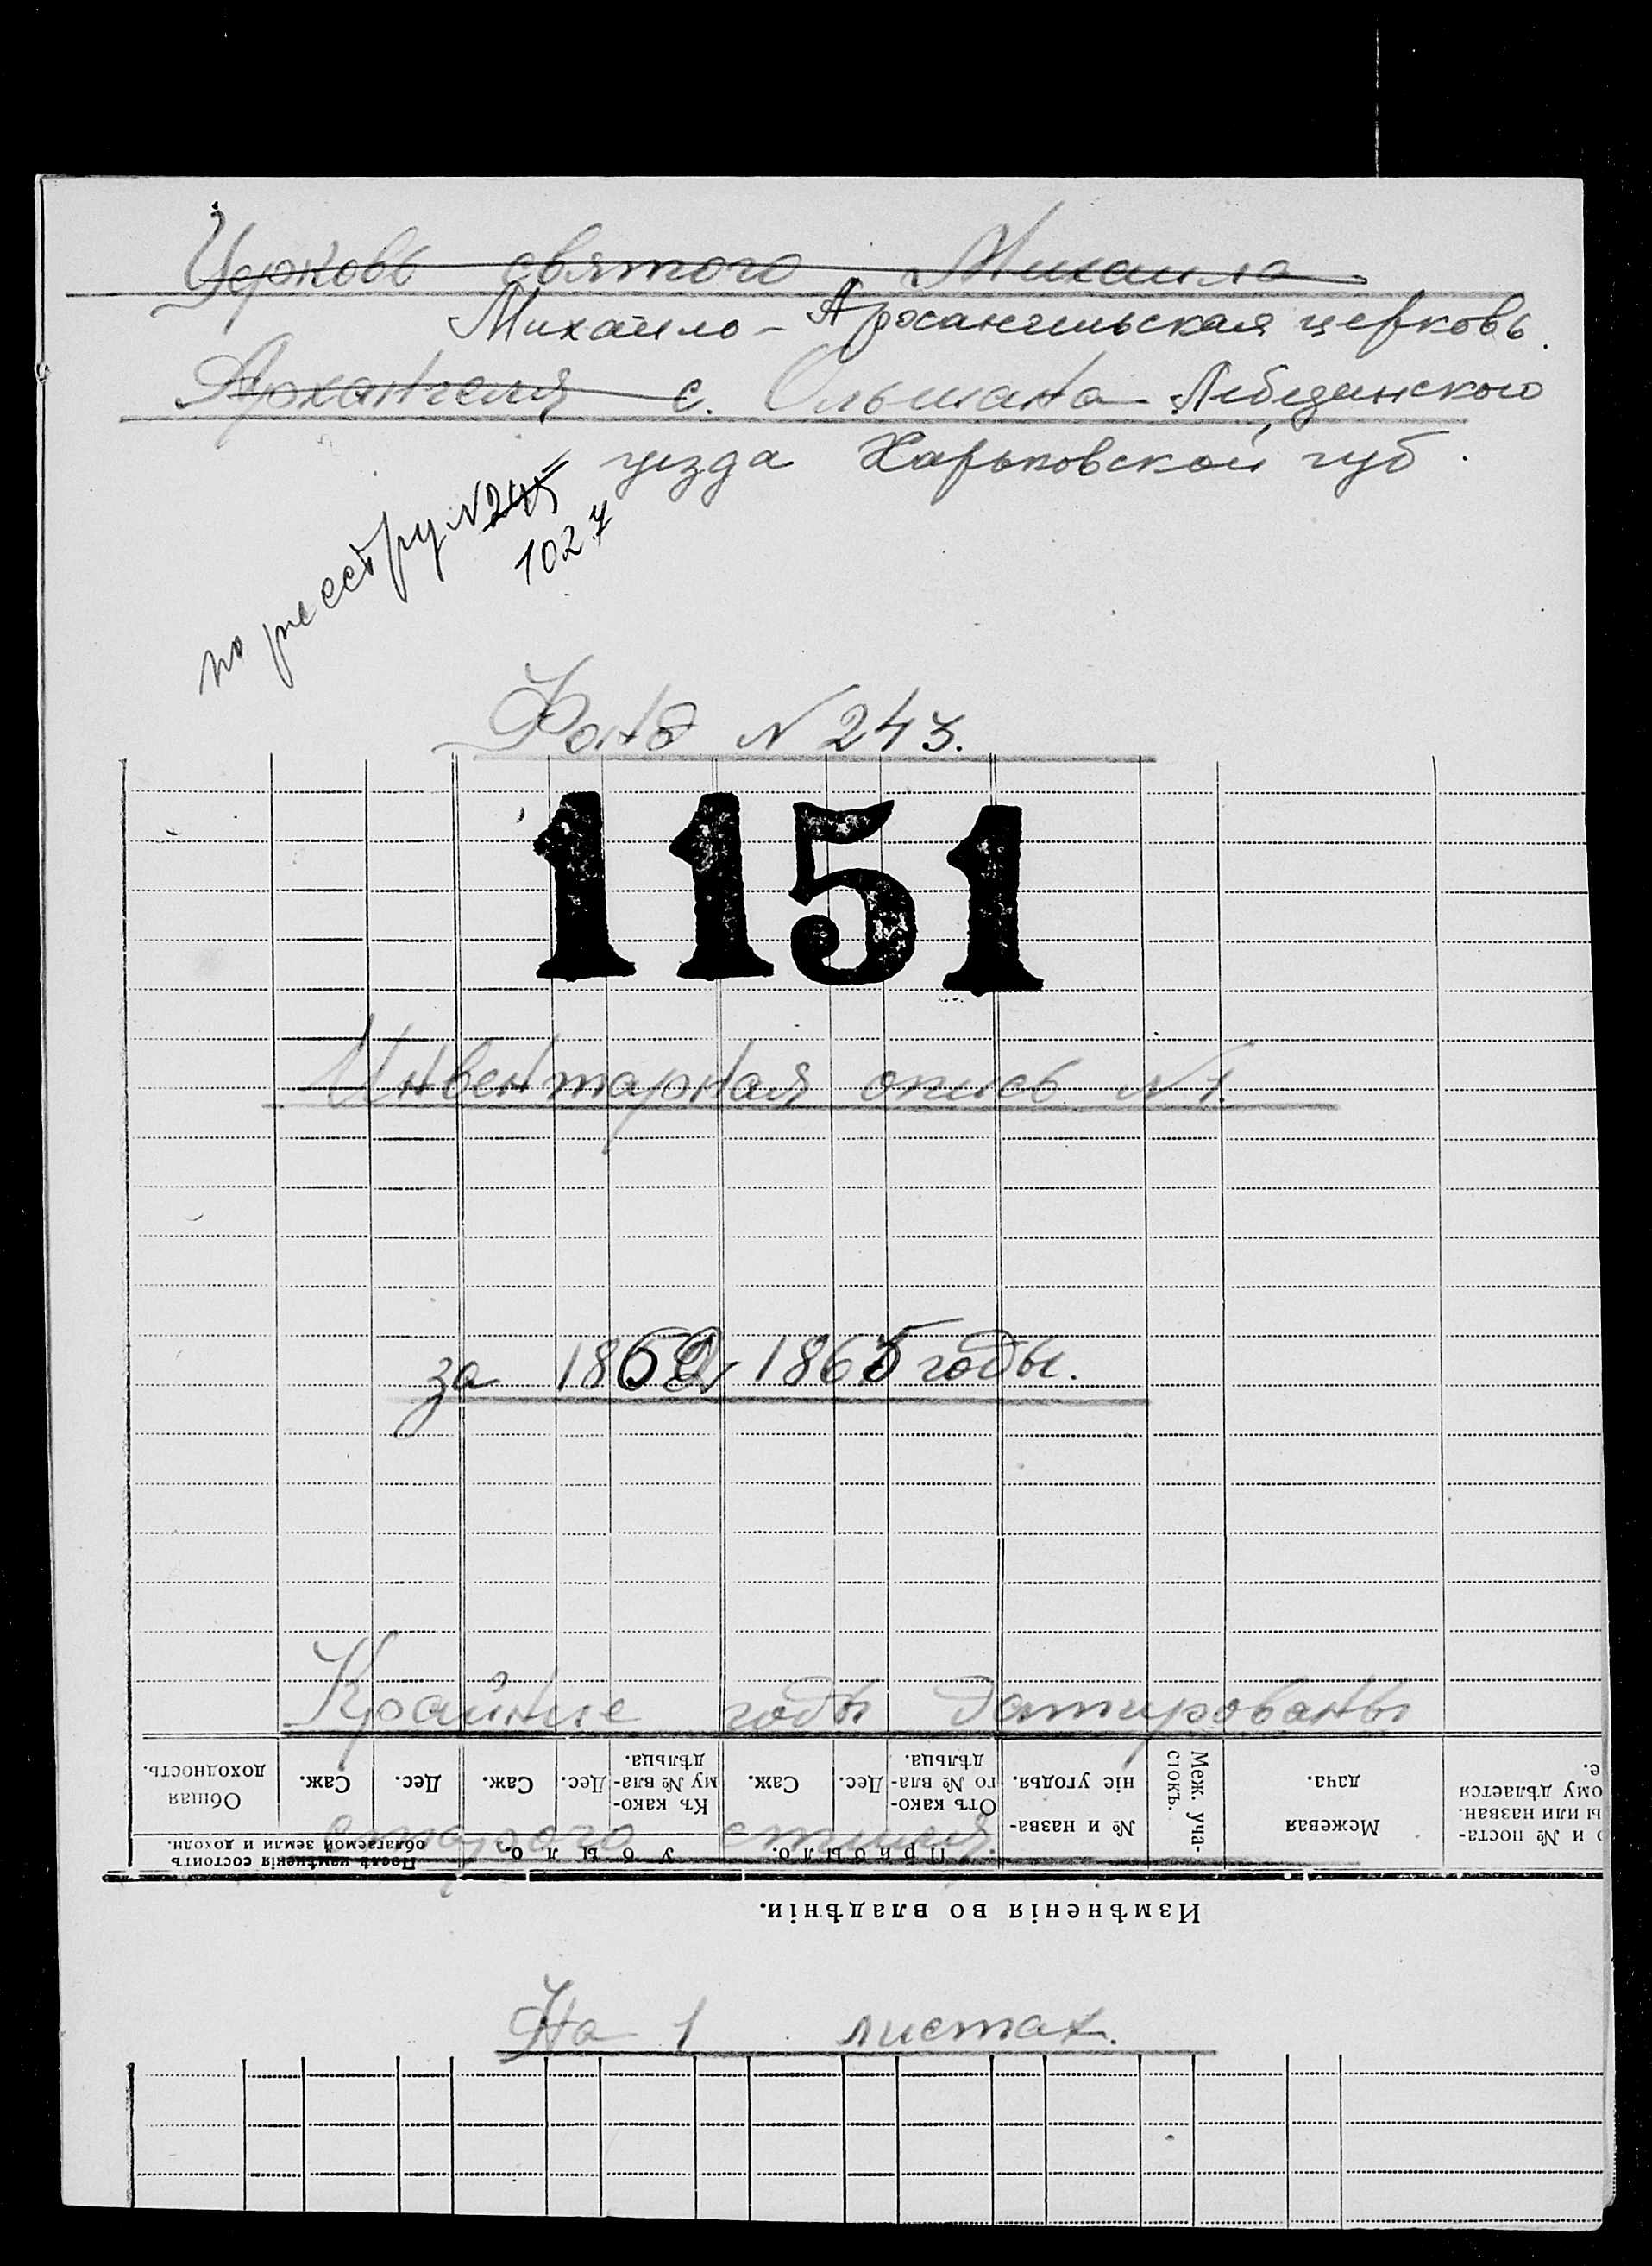 Церковь святого Михаила
Михаило-Архангельская церковь.
Архангела с. Ольшана Лебединского
уезда Харьковской губ.
по реестру №245
1027
Фонд №243.
1151
Инвентарная опись №1.
за 1862, 1865 годы.
Крайние годы датированы
старого стиля.
Общая доходность.
Саж.
Дес.
Саж.
Дес.
Къ како-
му № вла-
дѣльца.
Саж.
Дес.
Отъ како-
го № вла-
дѣльца.
№ и назва-
ніе угодья.
Меж. уча-
стокъ.
Межевая
дача.
и № поста-
ы или назван.
ому дѣлается
е.
Послѣ измѣненія состоитъ
облагаемой земли и доходн.
Убыло.
Прибыло.
Измѣненія во владѣніи.
На 1 листах.